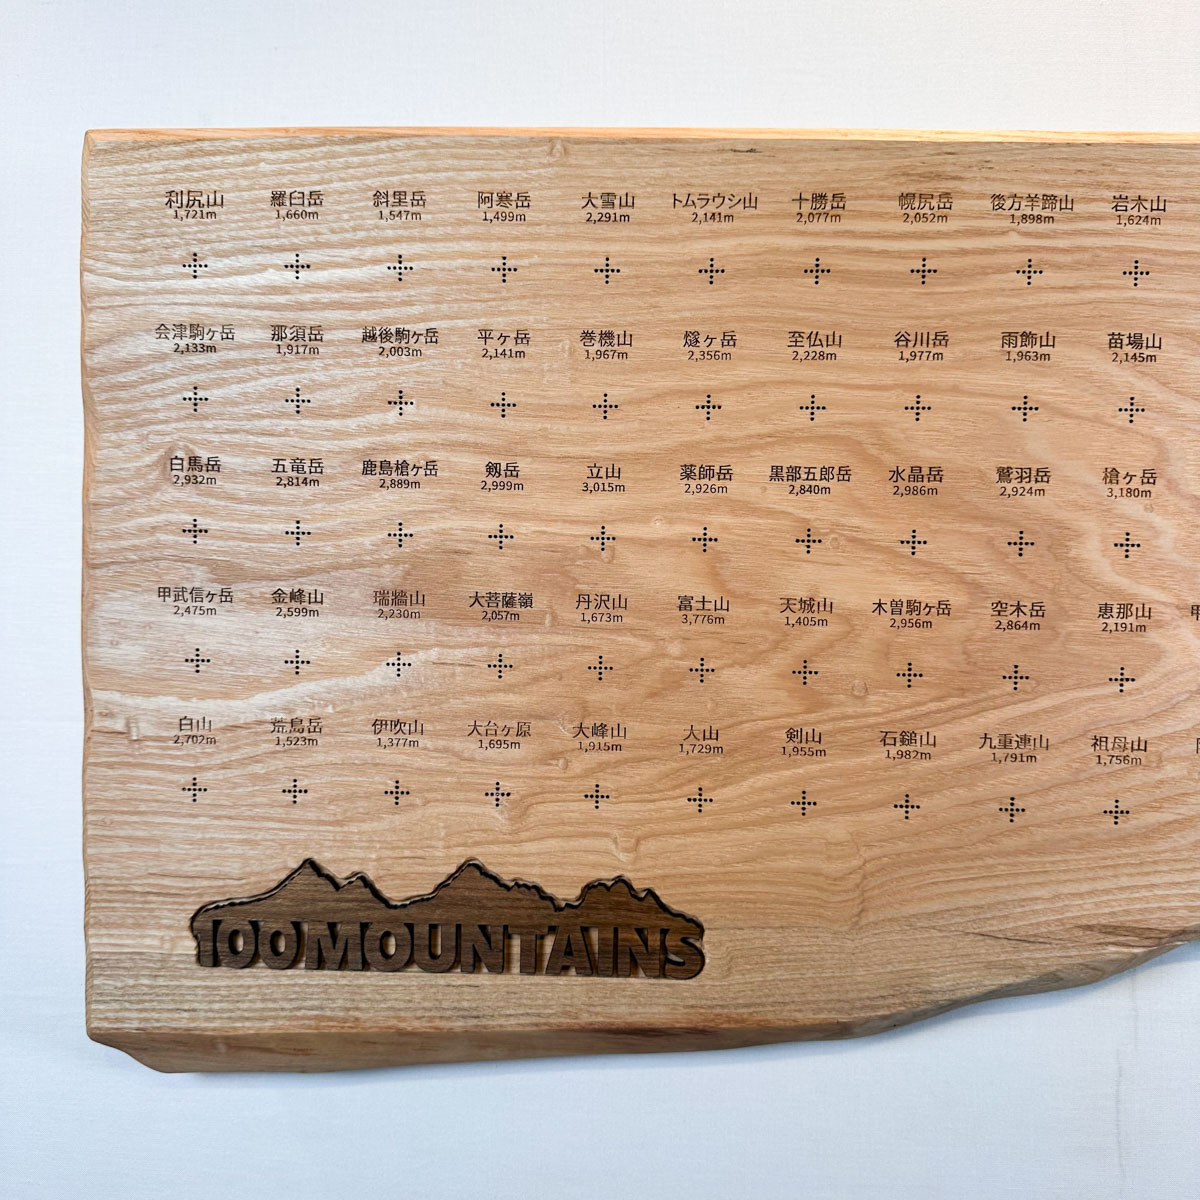 利尻山 羅臼岳 斜里岳 阿寒岳 大雪山 トムラウシ山 十勝岳 幌尻岳 後方羊蹄山 岩木山
1,721m 1,660m 1,547m 1,499m 2,291m 2,141m 2,077m 2,052m 1,898m 1,624m
会津駒ヶ岳 那須岳 越後駒ヶ岳 平ヶ岳 巻機山 燧ヶ岳 至仏山 谷川岳 雨飾山 苗場山
2,133m 1,917m 2,003m 2,141m 1,967m 2,356m 2,228m 1,977m 1,963m 2,145m
白馬岳 五竜岳 鹿島槍ヶ岳 剱岳 立山 薬師岳 黒部五郎岳 水晶岳 鷲羽岳 槍ヶ岳
2,932m 2,814m 2,889m 2,999m 3,015m 2,926m 2,840m 2,986m 2,924m 3,180m
甲武信ヶ岳 金峰山 瑞牆山 大菩薩嶺 丹沢山 富士山 天城山 木曽駒ヶ岳 空木岳 恵那山
2,475m 2,599m 2,230m 2,057m 1,673m 3,776m 1,405m 2,956m 2,864m 2,191m
白山 荒島岳 伊吹山 大台ヶ原 大峰山 大山 剣山 石鎚山 九重連山 祖母山
2,702m 1,523m 1,377m 1,695m 1,915m 1,729m 1,955m 1,982m 1,791m 1,756m
100MOUNTAINS